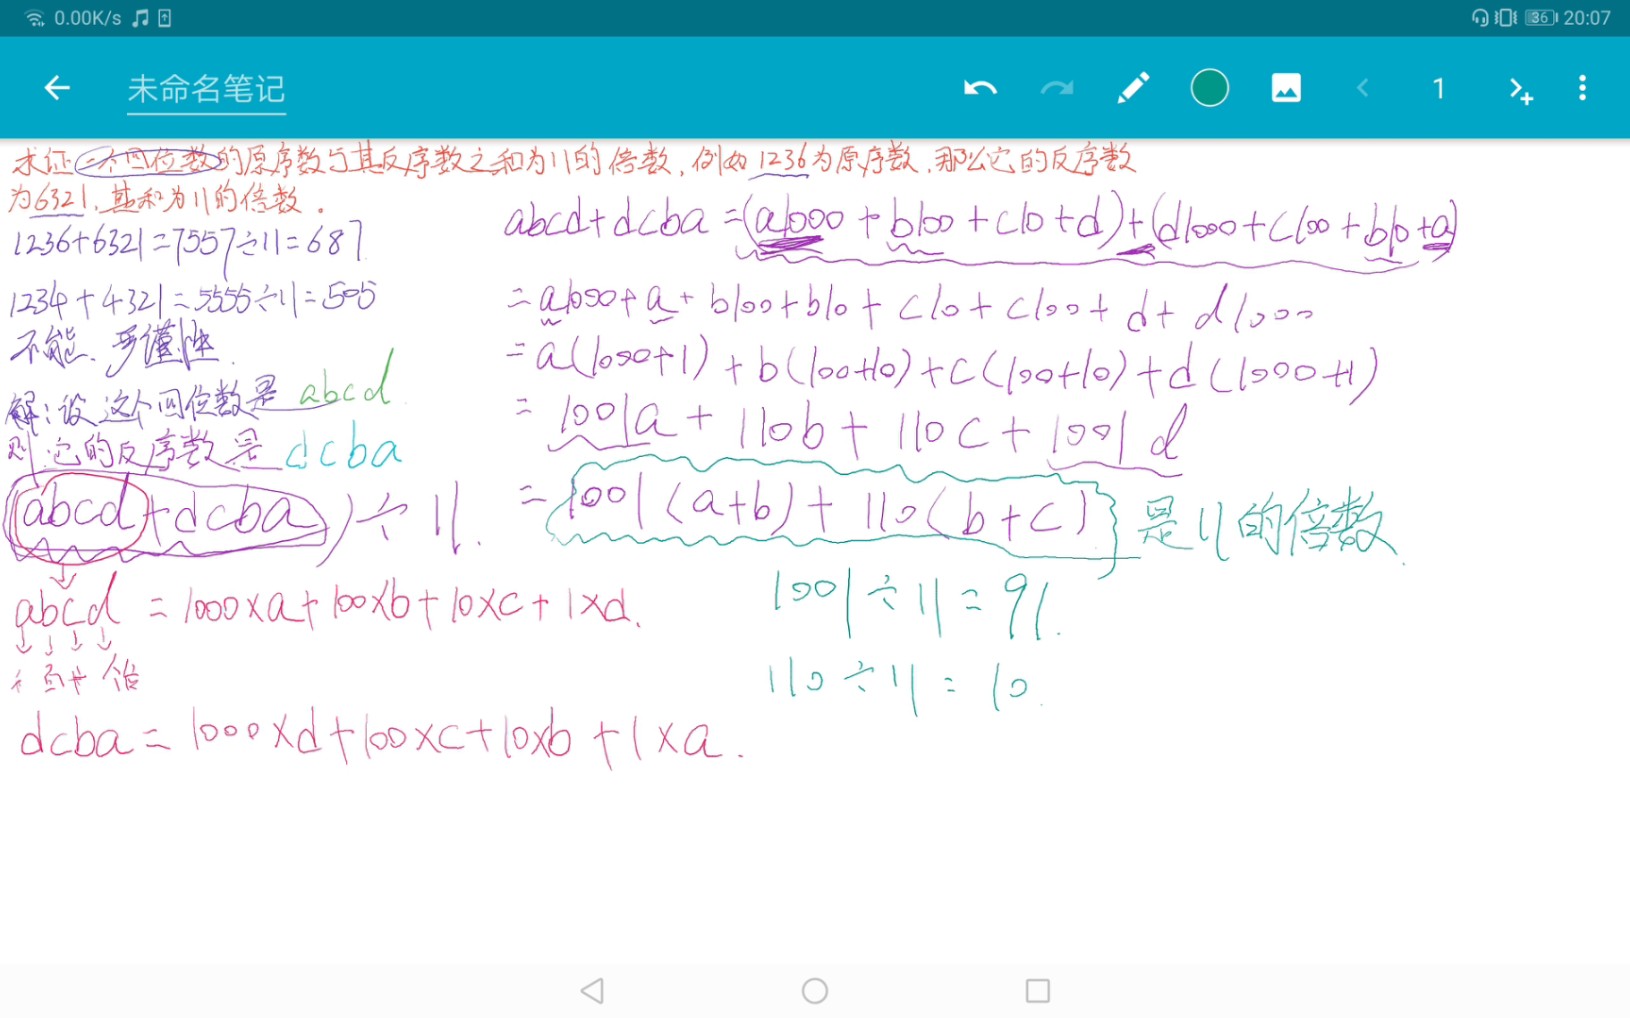 0.00K/s 36 20:07
未命名笔记 1
求证一个四位数的原序数与其反序数之和为11的倍数,例如1236为原序数,那么它的反序数
为6321,其和为11的倍数.
1236+6321=7557÷11=687
1234+4321=5555÷11=505
不能、严谨性.
解:设这个四位数是 abcd
则它的反序数是 dcba
(abcd+dcba)÷11.
abcd=1000×a+100×b+10×c+1×d.
千百十个
dcba=1000×d+100×c+10×b+1×a.
abcd+dcba=(a1000+b100+c10+d)+(d1000+c100+b10+a)
=a1000+a+b100+b10+c10+c100+d+d1000
=a(1000+1)+b(100+10)+c(100+10)+d(1000+1)
=1001a+110b+110c+1001d
=1001(a+b)+110(b+c)}是11的倍数.
1001÷11=91.
110÷11=10.